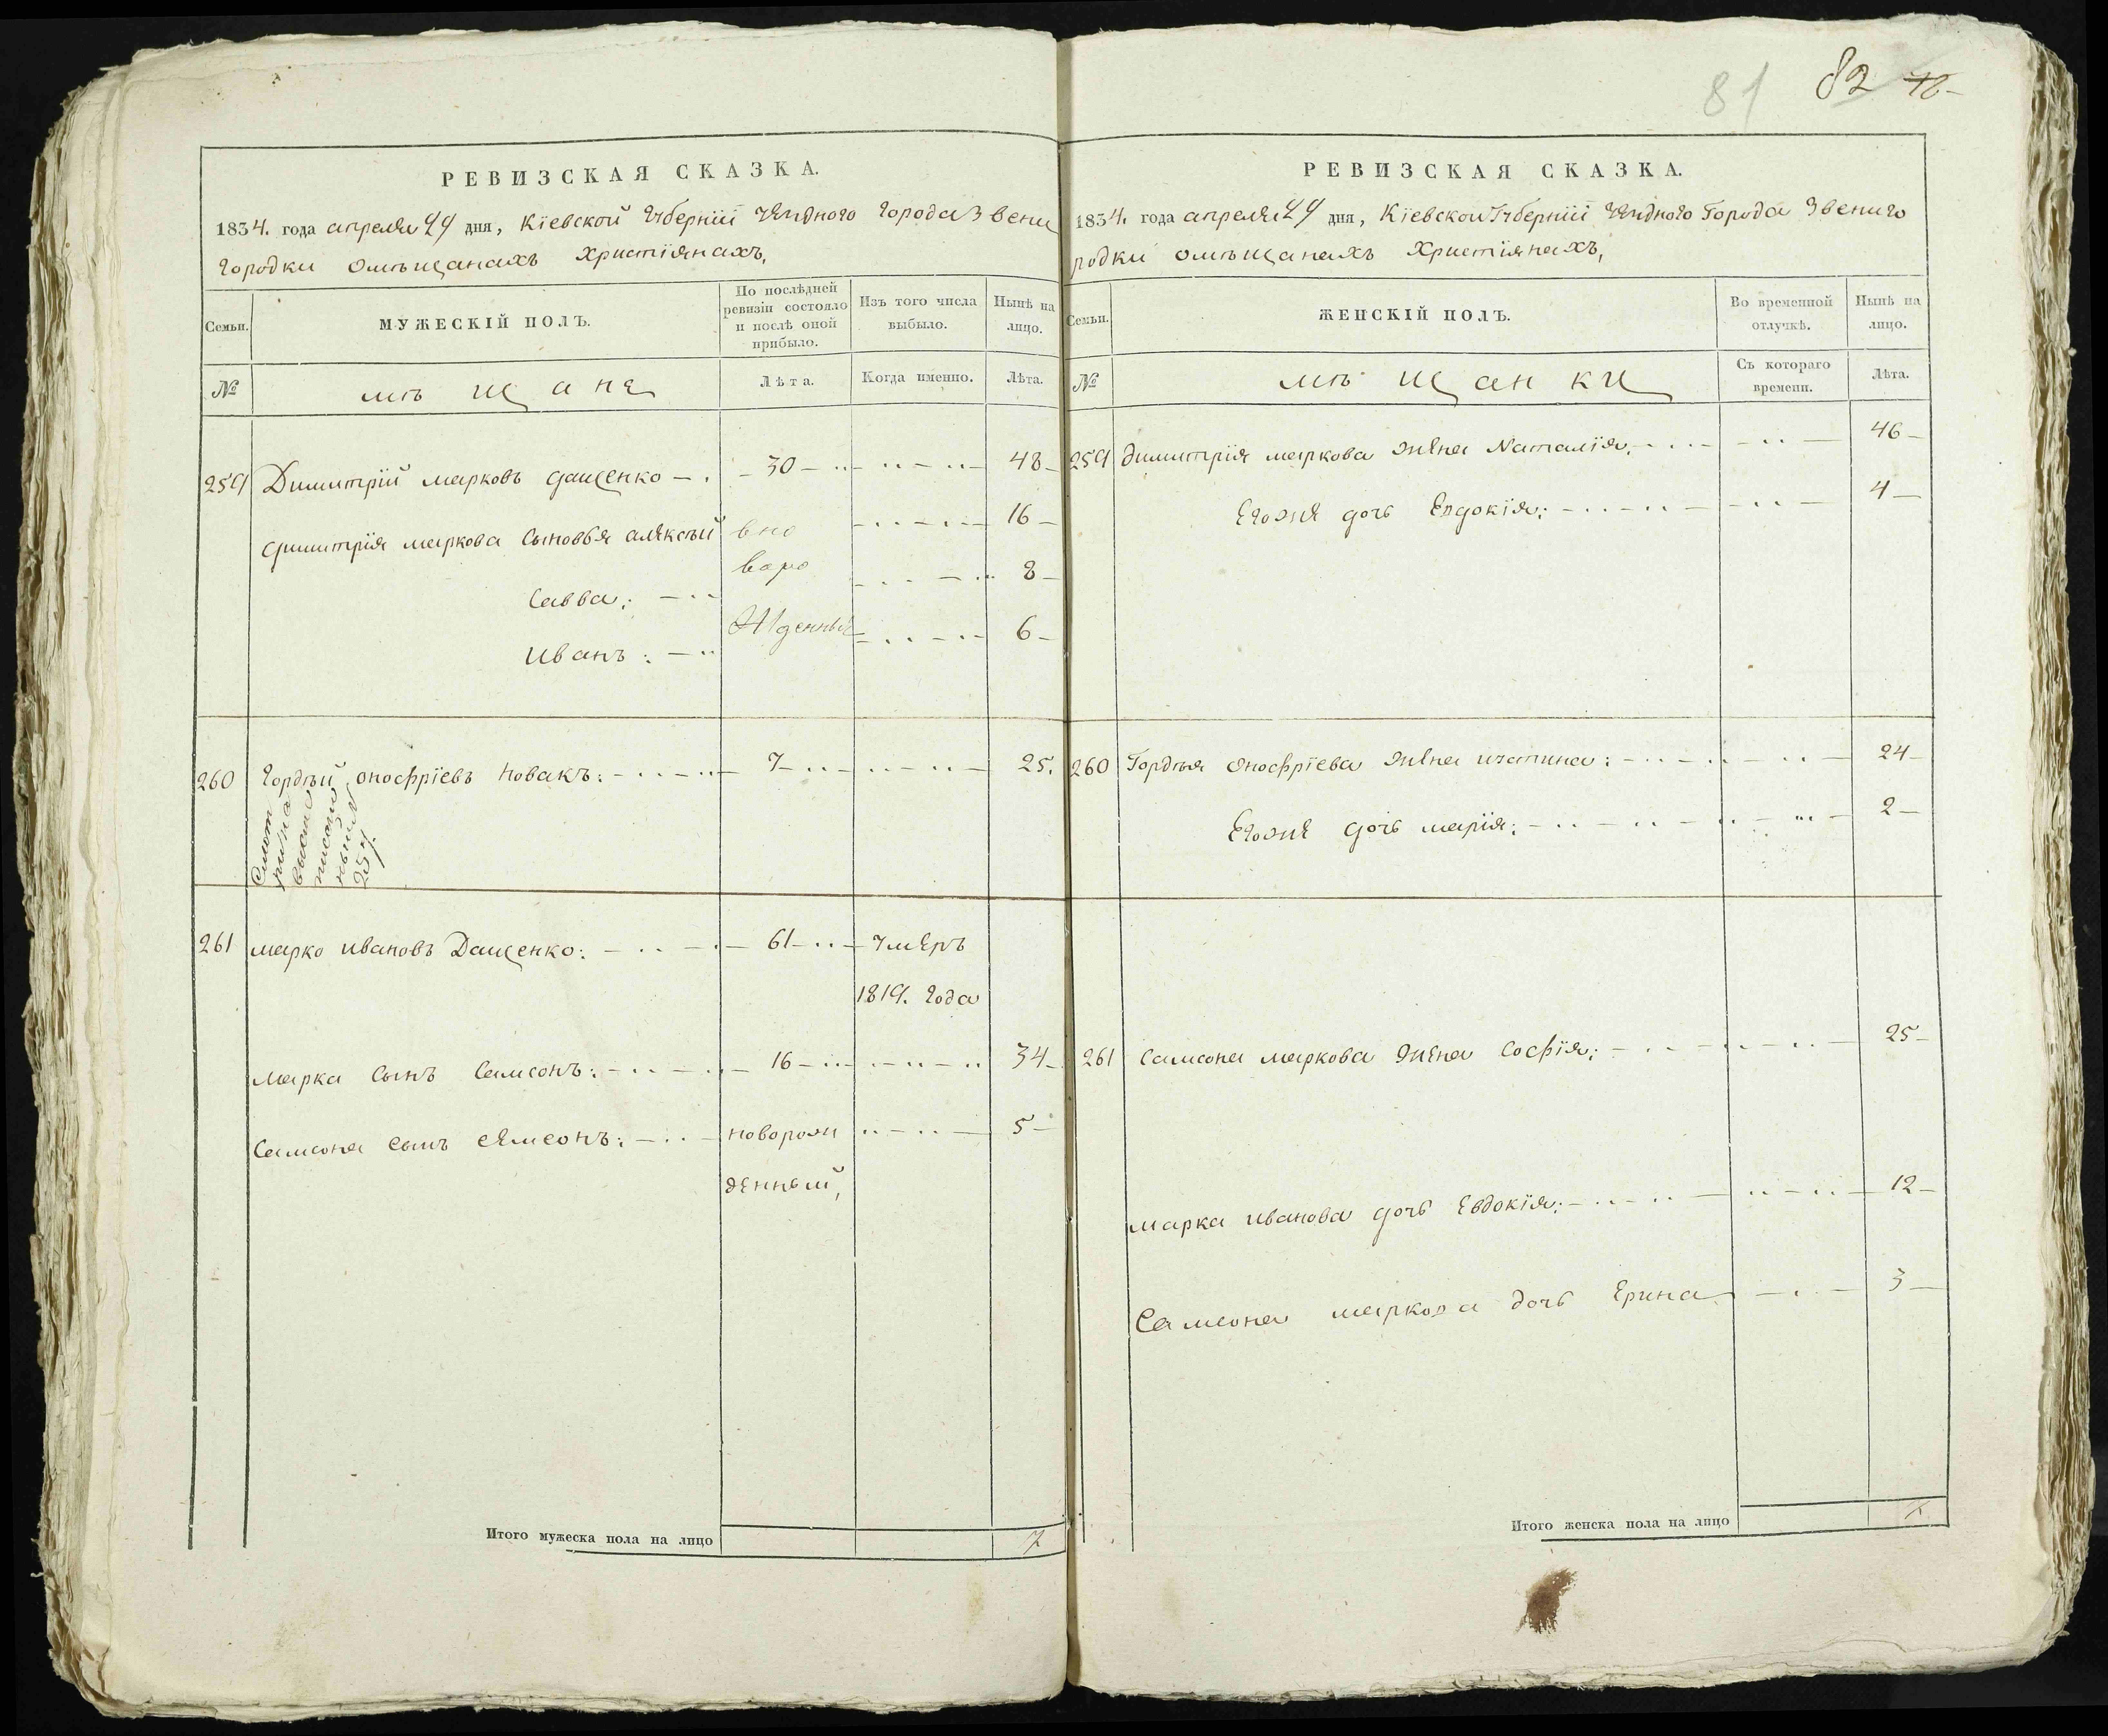 81 82 78
РЕВИЗСКАЯ СКАЗКА.
1834. года апреля 29 дня, Кіевской Губерніи уезднаго города Звени
городки омѣщанахъ христіянахъ,
Семьи.
МУЖЕСКІЙ ПОЛЪ.
По послѣдней ревизіи состояло и послѣ оной прибыло.
Изъ того числа выбыло.
Нынѣ на лицо.
№
мѣщане
Лѣта.
Когда именно.
Лѣта.
259 Димитрій марковъ дащенко 30 48
димитрія маркова сыновья алексѣй вно 16
Савва: варо 8
Иванъ: жденные 6
260 Гордѣй оноофріевъ новакъ: 7 25.
261 марко ивановъ Дащенко: 61 умеръ
1819. года
марка сынъ Самсонъ: 16 34
Самсона сынъ сѣмеонъ: новорож 5
денный,
Итого мужеска пола на лицо 7
РЕВИЗСКАЯ СКАЗКА.
1834. года апреля 29 дня, Кіевской Губерніи уезднаго Города Звениго
родки омѣщанахъ христіянахъ,
Семьи.
ЖЕНСКІЙ ПОЛЪ.
Во временной отлучкѣ.
Нынѣ на лицо.
№
мѣщанки
Съ котораго времени.
Лѣта.
259 димитрія маркова жена Наталія, 46
Егоже дочь Евдокія: 4
260 Гордѣя Онофріева жена устина: 24
Егоже дочь марія: 2
261 Самсона маркова жена Софія: 25
марка иванова дочь Евдокія: 12
Самсона маркова дочь Ерина 3
Итого женска пола на лицо 7